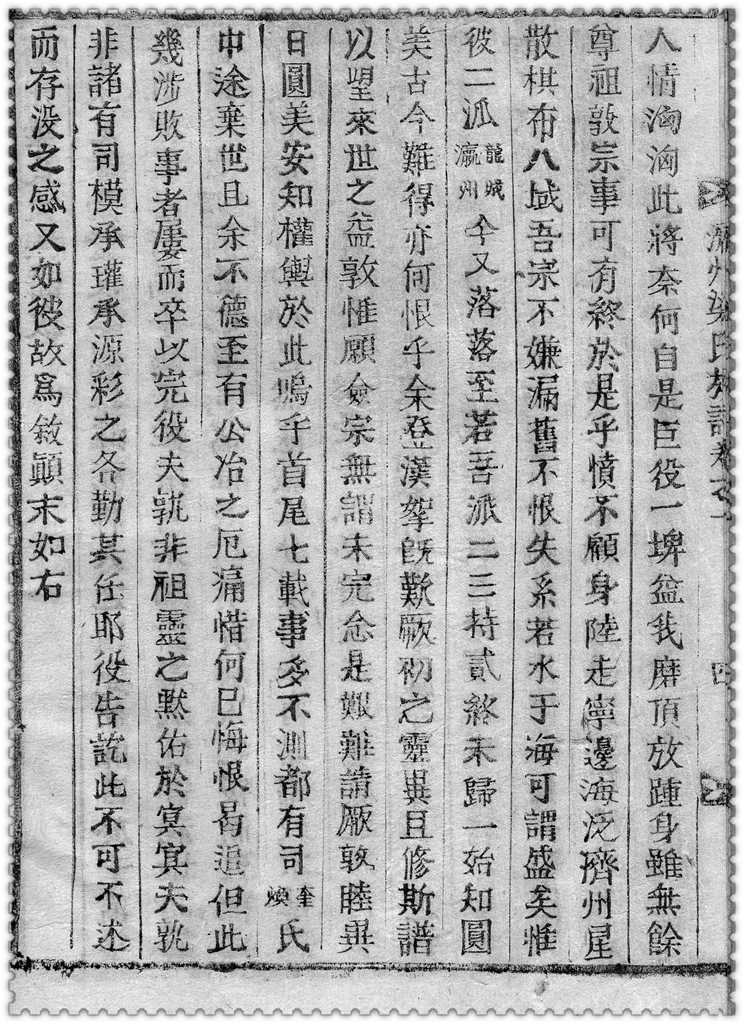 人情洶洶此將奈何自是巨役一埤益我磨頂放踵身雖無餘
尊祖敦宗事可有終於是乎憤不顧身陸走寧邊海泛濟州星
散棋布八域吾宗不嫌漏舊不恨失系若水于海可謂盛矣惟
彼二派龍城瀛州今又落落至若吾派二三持貳終未歸一始知圓
美古今難得亦何恨乎余登漢拏旣歎厥初之靈異且修斯譜
以望來世之益敦惟願僉宗無謂未完念是艱難請厥敦睦異
日圓美安知權輿於此嗚乎首尾七載事多不測都有司奎煥氏
中途棄世且余不德至有公冶之厄痛惜何已悔恨曷追但此
幾涉敗事者屢而卒以完役夫孰非祖靈之黙佑於冥冥夫孰
非諸有司模承瓘承源彩之各勤其任耶役告訖此不可不述
而存没之感又如彼故爲敘顚末如右
州梁氏族譜卷之一
四